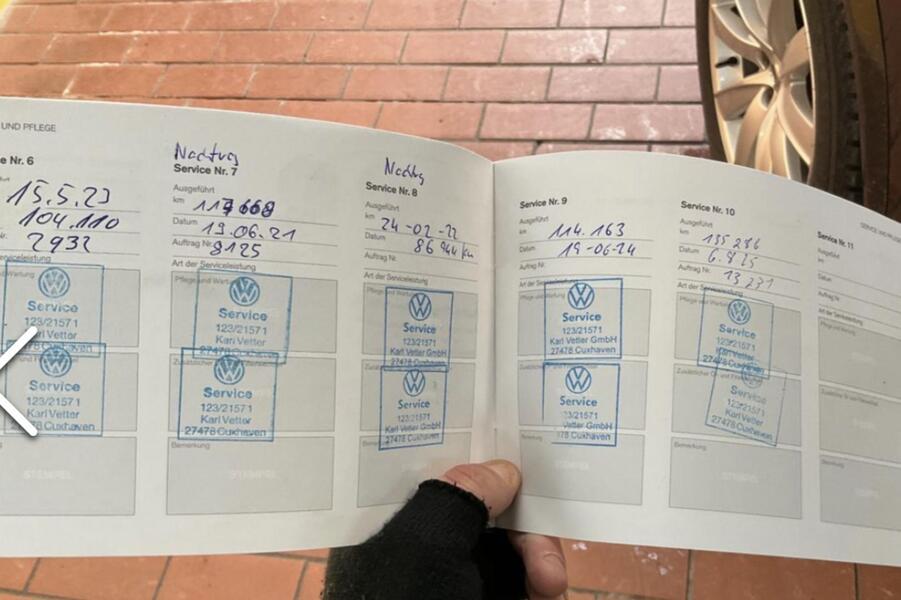 UND PFLEGE
e Nr. 6
15.5.23
104.110
2932
Serviceleistung
Wartung
Service
123/21571
Karl Vetter
27478 Cuxhaven
Service
123/21571
Karl Vetter
27478 Cuxhaven
STEMPEL
Nachtrag
Service Nr. 7
Ausgeführt
km
Datum 19.06.21
Auftrag Nr. 8125
Art der Serviceleistung
Pflege und Wartung
Service
123/21571
Karl Vetter
27478 Cuxhaven
Service
123/21571
Karl Vetter
27478 Cuxhaven
Bemerkung
STEMPEL
Service Nr. 8
Ausgeführt
km 24-02-22
Datum 86 944 km
Auftrag Nr.
Art der Serviceleistung
Pflege und Wartung
Service
123/21571
Karl Vetter GmbH
27478 Cuxhaven
Service
123/21571
Karl Vetter GmbH
27478 Cuxhaven
Bemerkung
Service Nr. 9
Ausgeführt
km 114.163
Datum 19-06-24
Auftrag Nr.
Art der Serviceleistung
Pflege und Wartung
Service
123/21571
Karl Vetter GmbH
27478 Cuxhaven
Service
123/21571
Karl Vetter GmbH
27478 Cuxhaven
Bemerkung
Service Nr. 10
Ausgeführt
km 135 286
Datum 6.8.25
Auftrag Nr.
Art der Serviceleistung
Pflege und Wartung
Service
123/21571
Karl Vetter
27478 Cuxhaven
Service
123/21571
Karl Vetter
27478 Cuxhaven
Bemerkung
STEMPEL
SERVICE UND PFLEGE
Service Nr. 11
Ausgeführt
km
Datum
Auftrag Nr.
Art der Serviceleistung
Pflege und Wartung
Bemerkung
STEMPEL